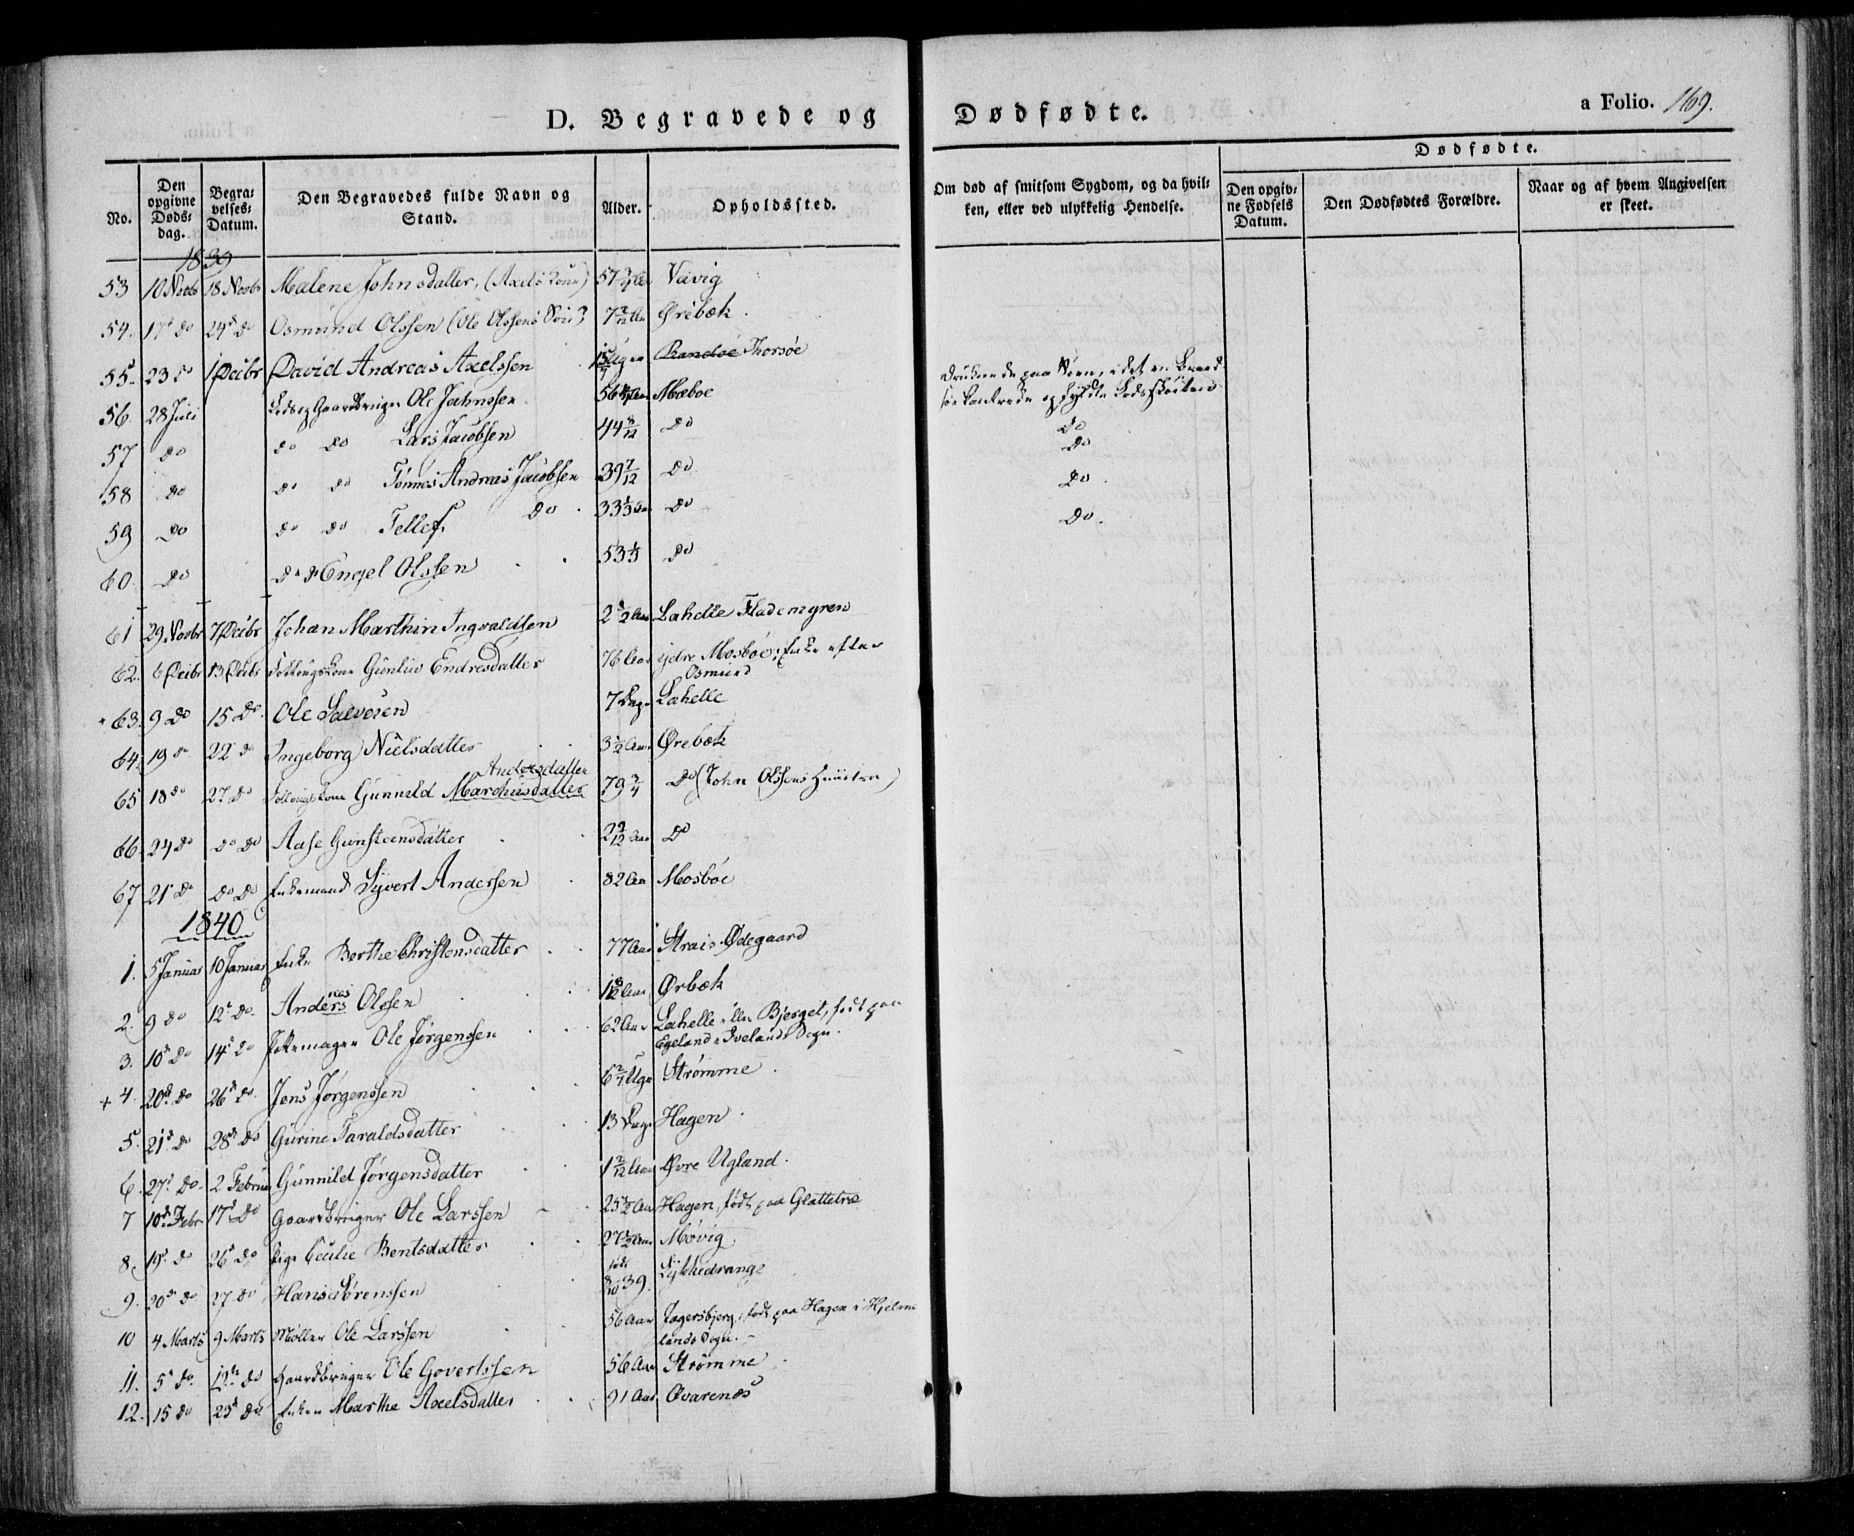 D. Begravede og Dødfødte.
a Folio. 169.
No.
Den opgivne Døds-dag.
Begra-velses-Datum.
Den Begravedes fulde Navn og Stand.
Alder.
Opholdssted.
Om død af smitsom Sygdom, og da hvil-ken, eller ved ulykkelig Hendelse.
Dødfødte.
Den opgiv-ne Fødsels Datum.
Den Dødfødtes Forældre.
Naar og af hvem Angivelsen er skeet.
1839
53 10 Novbr 18 Novbr Malene Johnsdatter, (Axels Kone) 57 Vavig
54. 17 do 24 do Osmund Olssen (Ole Olssens Søn) 7 Ørebæk
55. 23 do 1 Decbr David Andreas Axelssen Uger Randøe Thorsøe
56. 28 Juli Lods og Gaardbruger Ole Jahnssen 56 Mæboe
druknede paa Søen, i det en Braad
søe kantrede og fyldte Lodsskøiten
57 do do do Lars Jacobsen 44 do do
do
58 do do do Tønnes Andreas Jacobsen 39 7/12 do do
59 do do do Tellef do 33 1/3 do do
60. do do do Engel Olssen 53 1/3 do
61 29 Novbr 7 Decbr Johan Marthin Ingvaldsen 2 1/2 Aar Lahelle Flademgren
62. 6 Decbr 13 Decbr Gunluv Endresdatter 76 Aar ydre Mosbøe, Enke efter Osmund
63. 9 do 15 do Ole Salvesen 7 Dage Lahelle
64. 19 do 22 do Ingeborg Nielsdatter 3 1/2 Aar Ørebæk
Andersdatter
65 18 do 27 do Gunnild Marchusdatter 79 3/4 do (John Olssens Huustru)
66. 24 do do do Aase Gunsteensdatter 2 9/12 Aar do
67 21 do do do Enkemand Syvert Andersen 82 Aar Mosbøe
1840
1. 5 Januar 10 Januar Enke Berthe Christensdatter 77 Aar Strais Ødegaard
2. 9 do 12 do Anders reas Olssen Aar Ørbæk
3. 10 do 14 do Pottemager Ole Jørgenssen 62 Aar Lahelle eller Bjerget, født paa Egeland i Ivelands Sogn.
+ 4. 20 do 26 do Jens Jørgenssen 6 2/7 Uger Strømme
5. 21 do 28 do Gurine Taraldsdatter 13 Dage Hagen
6. 27 do 2 Februar Gunnild Jørgensdatter 1 2/12 Aar Øvre Ugland.
7 10 Febr 17 do Gaardbruger Ole Larssen 25 1/2 Aar Hagen, født paa Glattetræ
8. 19 do 26 do Pige Cecilie Bentsdatter 27 1/2 Aar Møvig
9. 20 do 27 do Hans Sørenssen født 8/10 39. Lykkedrange
10 4 Marts 9 Marts Møller Ole Larssen 56 Aar Jægersbjerg, født paa Hagen i Hjelmelands Sogn.
11. 5 do 12 do Gaardbruger Ole Govertssen 56 Aar Strømme
12. 15 do 23 do Enken Marthe Axelsdatter 91 Aar Qvarenæs